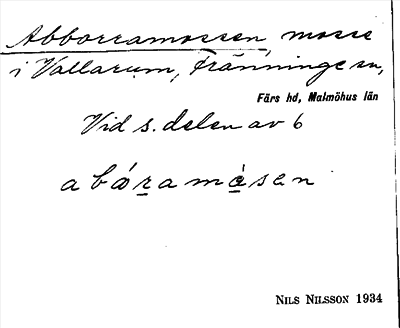 Abborramossen, mosse
i Vallarum, Fränninge sn,
Färs hd, Malmöhus län
Vid s. delen av 6
abǿra mèsen
NILS NILSSON 1934